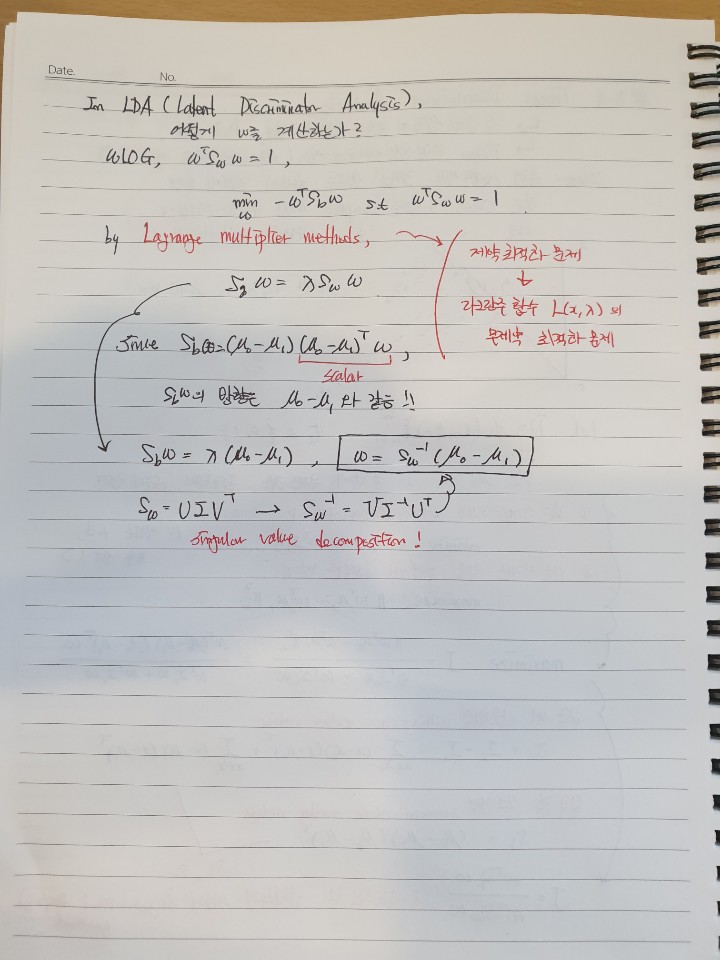 Date.
No.
In LDA (Latent Discriminator Analysis),
어떻게 w를 계산하는가?
WLOG, wᵀS_w w = 1,
min_w -wᵀS_b w s.t wᵀS_w w = 1
by Lagrange multiplier methods,
제약 최적화 문제
↓
라그랑주 함수 L(x, λ) 의
문제약 최적화 문제
S_b w = λ S_w w
Since S_b w = (μ₀ - μ₁)(μ₀ - μ₁)ᵀ w,
scalar
S_b w의 방향은 μ₀ - μ₁ 와 같음!!
S_b w = λ(μ₀ - μ₁), w = S_w⁻¹(μ₀ - μ₁)
S_w = UΣVᵀ → S_w⁻¹ = VΣ⁻¹Uᵀ
singular value decomposition!